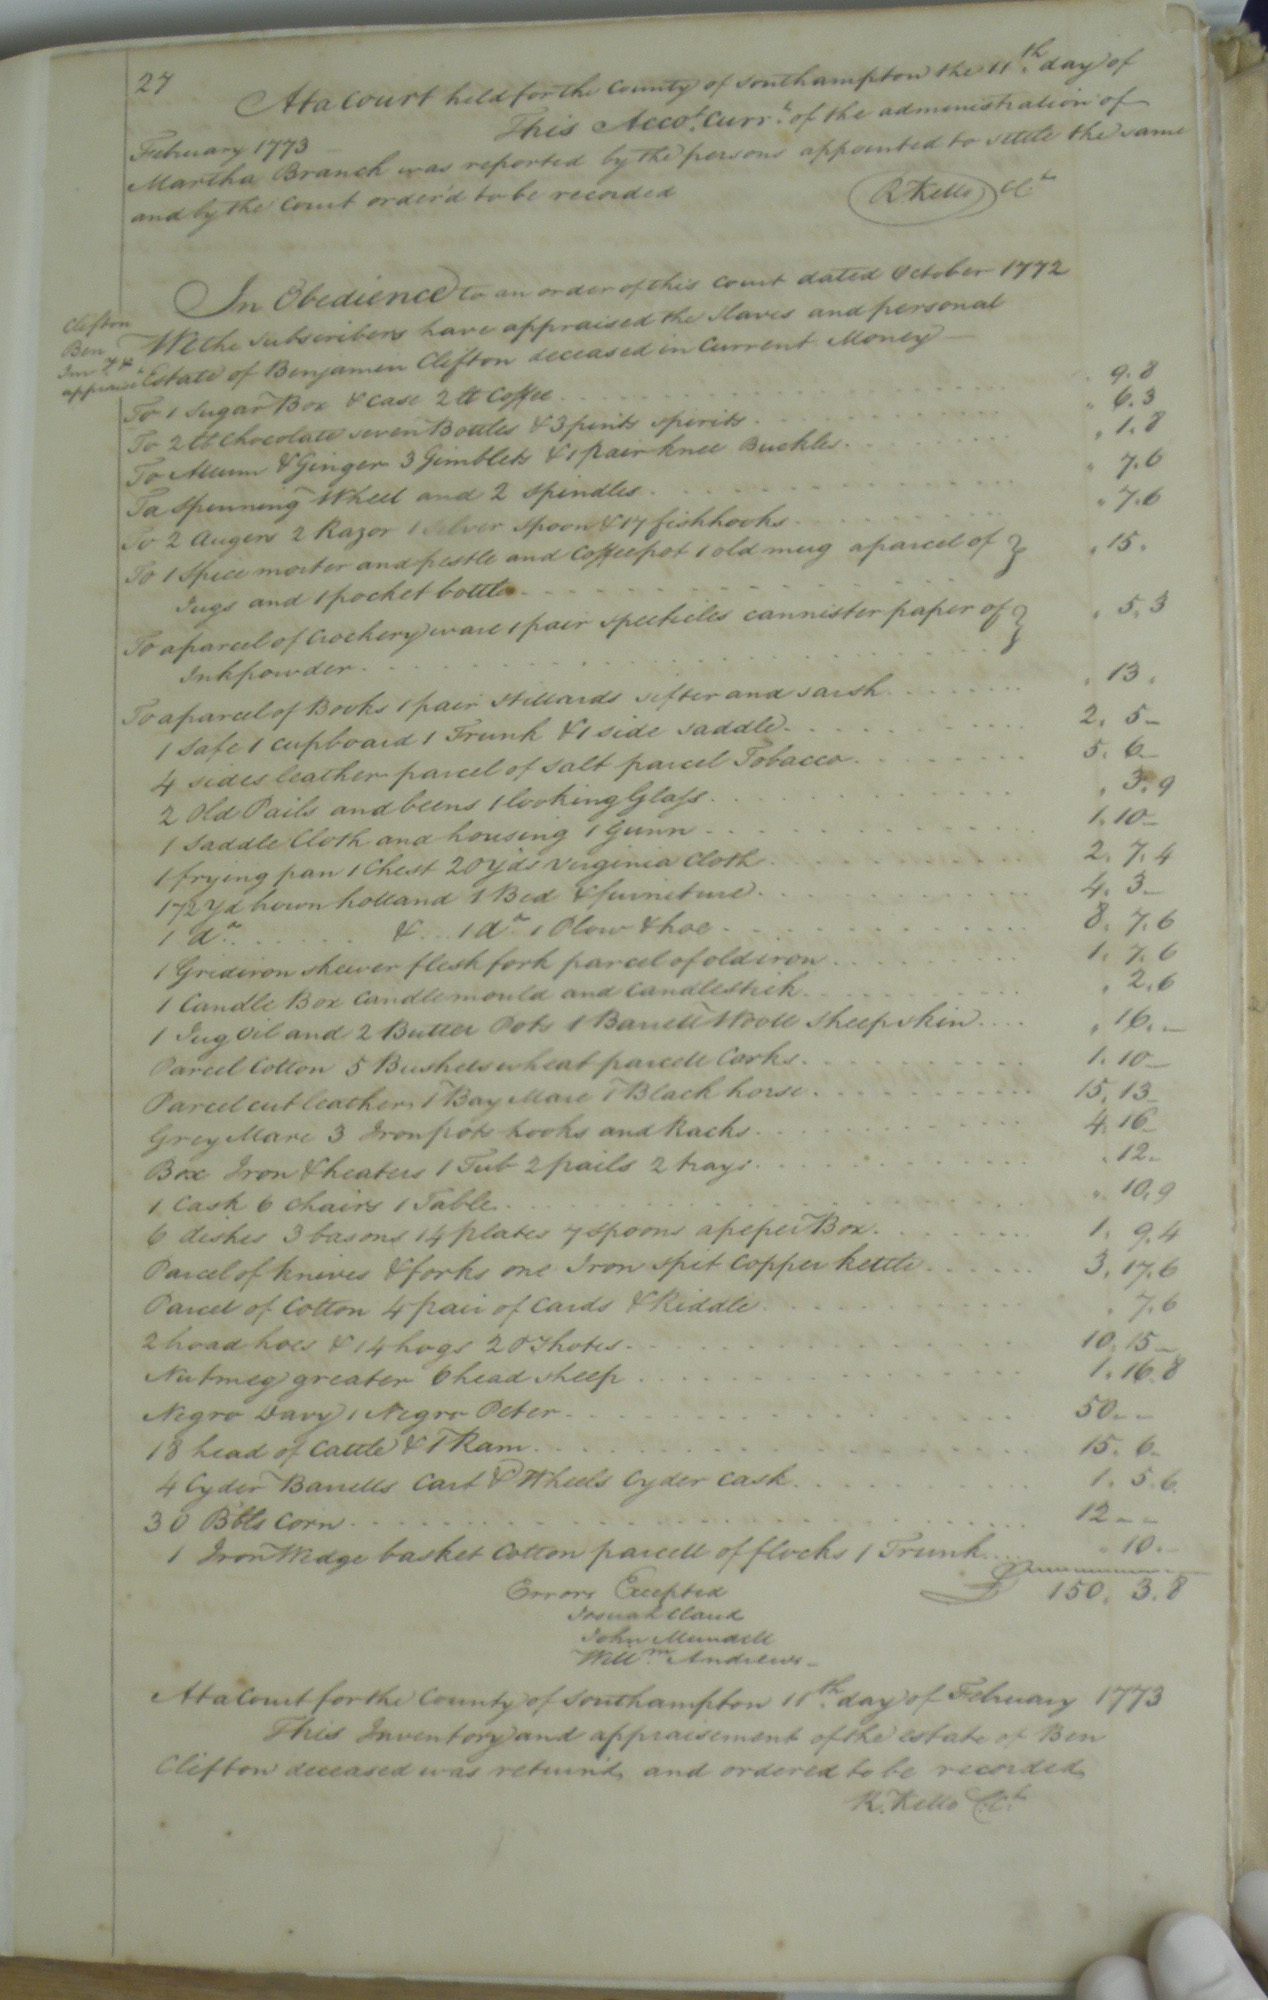 27
At a Court held for the County of Southampton the 11th day of
February 1773
This Accot. Currt. of the administration of
Martha Branch was reported by the persons appointed to settle the same
and by the Court order'd to be recorded
R Kello Clk
In Obedience to an order of this Court dated October 1772
Clifton
Ben
Invy. &
apprais
We the subscribers have appraised the slaves and personal
Estate of Benjamin Clifton deceased in Current Money
To 1 Sugar Box & Case 2 lb Coffee 9.8
To 2 lb Chocolate seven Bottles & 3 pints spirits 6.3
To Allum & Ginger 3 Gimblets & 1 pair knee Buckles 1.8
To a Spinning Wheel and 2 spindles 7.6
To 2 Augers 2 Razor 1 Silver spoon & 17 fishhooks 7.6
To 1 Spice morter and pestle and Coffeepot 1 old mug a parcel of
Jugs and 1 pocket bottle 15.
To a parcel of Crockery ware 1 pair specticles cannister paper of
Inkpowder 5.3
To a parcel of Books 1 pair stillards sifter and sarsh 13.
1 Safe 1 cupboard 1 Trunk & 1 side saddle 2. 5-
4 sides leather parcel of salt parcel Tobacco 5. 6-
2 Old Pails and beens 1 looking Glass 3.9
1 Saddle Cloth and housing 1 Gunn 1.10-
1 frying pan 1 Chest 20 yds virginia Cloth 2. 7.4
17½ yd brown holland 1 Bed & furniture 4. 3-
1 do. & 1 do. 1 Plow & hoe 8. 7.6
1 Gridiron skewer flesh fork parcel of old iron 1. 7.6
1 Candle Box Candlemould and Candlestick 2.6
1 Jug Oil and 2 Butter Pots 1 Barrell Wooll sheep skin 16.-
Parcel Cotton 5 Bushels wheat parcell Corks 1.10-
Parcel cut leather 1 Bay Mare 1 Black horse 15.13
Grey Mare 3 Iron pots hooks and Racks 4.16
Box Iron & heaters 1 Tub 2 pails 2 trays 12-
1 Cask 6 chairs 1 Table 10.9
6 dishes 3 basons 14 plates 7 spoons a peper Box 1. 9.4
Parcel of knives & forks one Iron spit Copper kettle 3.17.6
Parcel of Cotton 4 pair of Cards & Riddle 7.6
2 hoad hoes & 14 hogs 20 Shotes 10.15-
Nutmeg greater 6 head sheep 1.16.8
Negro Davy 1 Negro Peter 50--
18 head of Cattle & 1 Ram 15. 6-
4 Cyder Barrells Cart & Wheels Cyder Cask 1. 5.6
30 Bbls Corn 12--
1 Iron Wedge basket Cotton parcell of flocks 1 Trunk 10.-
Errors Excepted £ 150. 3.8
Claud
John Mundell
Willm. Andrews
At a Court for the County of Southampton 11th day of February 1773
This Inventory and appraisement of the estate of Ben
Clifton deceased was returnd and ordered to be recorded
R. Kello C.Clk